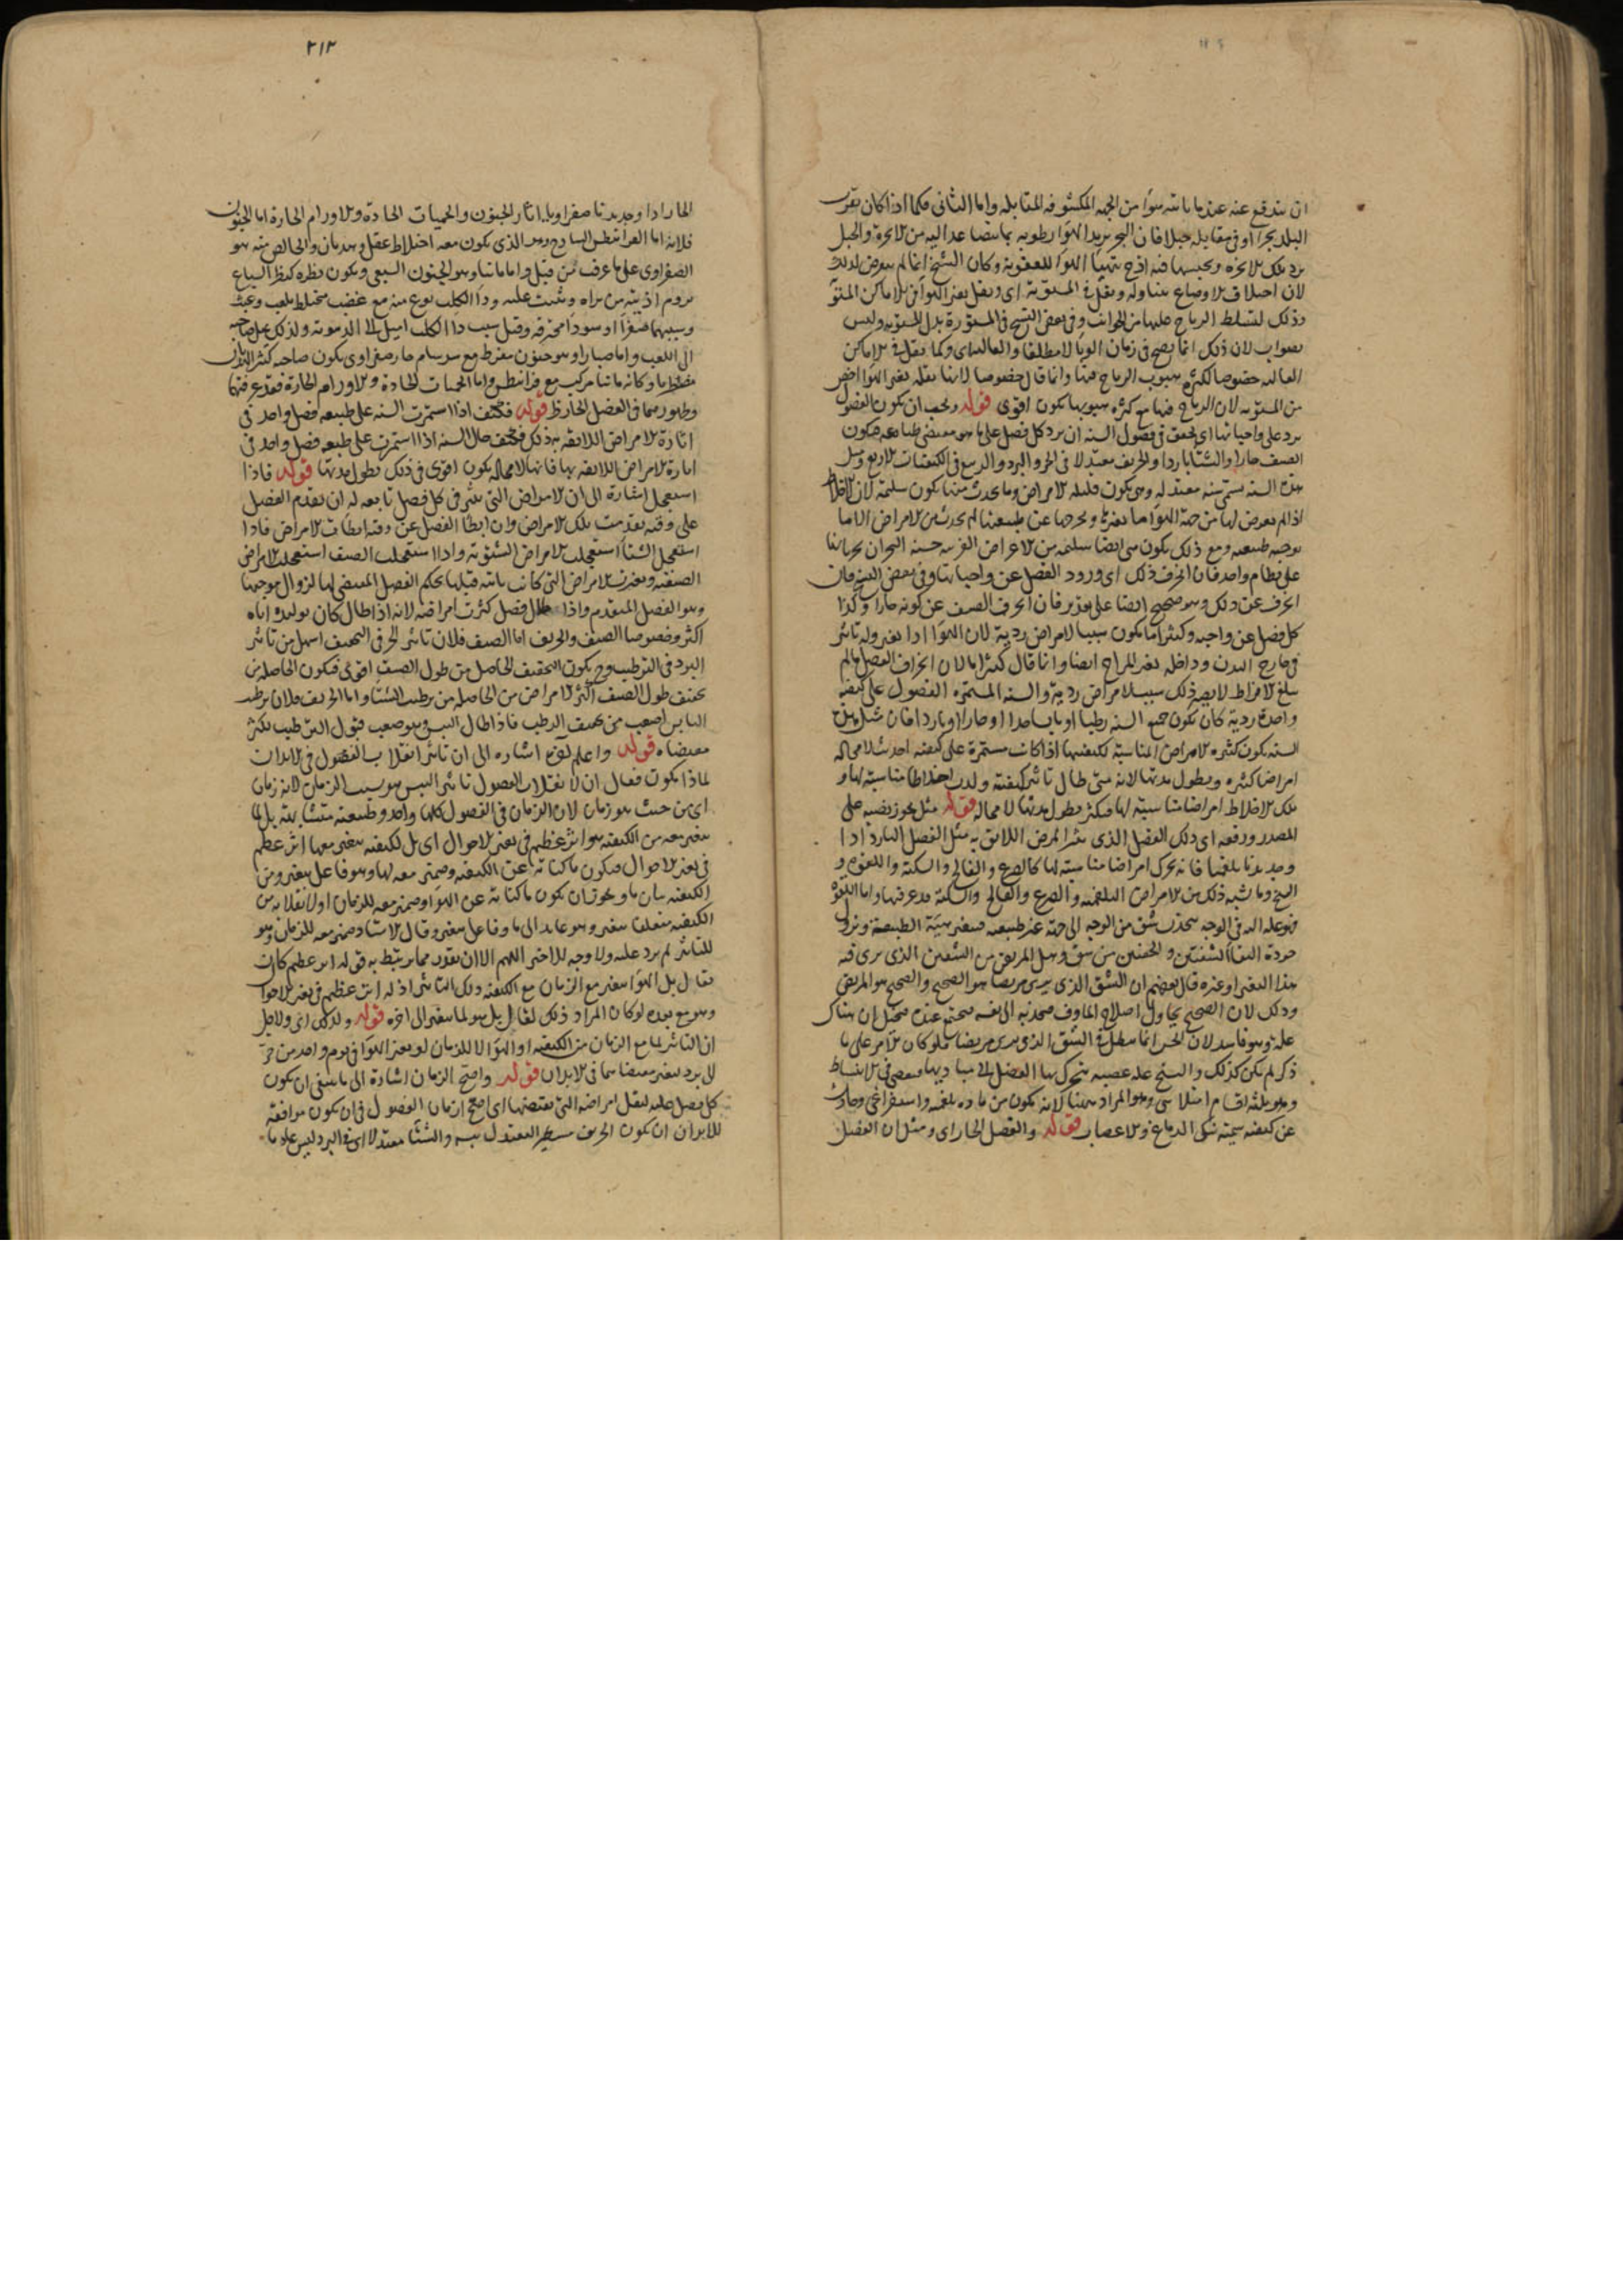 ٢١٣
ان يندفع عنه عندما ياتيه هوا من الجهة المكشوفة المقابلة واما الثانى فكما اذا كان بقرب
البلد بحرا وفى مقابله جبلا فان البحر يزيد الهوا رطوبة بما يتصاعد اليه من الابخرة والجبل
يرد تلك الابخرة ويحبسها فيه اذ ح يتهيا الهوا للعفونة وكان الشيخ انما لم يتعرض لذلك
لان اختلاف الاوضاع يتناوله ويقل فى المستوية اى ويقل تغير الهوا فى الاماكن المستوية
وذلك لتسلط الرياح عليها من الجوانب وفى بعض النسخ فى المستورة بدل المستوية وليس
بصواب لان ذلك انما يصح فى زمان الوبا لا مطلقا والعالية اى وكما يقل فى الاماكن
العالية خصوصا لكثرة هبوب الرياح فيها وانما قال خصوصا لانها
من المستوية لان الرياح فيها مع كثرة هبوبها يكون اقوى قوله ويجب ان يكون الفصول
ترد على واجباتها اى يجب فى فصول السنة ان يرد كل فصل على ما هو مقتضى طباعه فيكون
الصيف حارا والشتا باردا والخريف معتدلا فى الحر والبرد والربيع فى الكيفيات الاربع ومثل
هذه السنة يسمى سنة معتدلة وهى يكون قليلة الامراض وما يحدث منها يكون سليمة لان الاخلاط
اذا لم يعرض لها من جهة الهوا ما يغيرها ويخرجها عن طبيعتها لم يحدث من الامراض الا ما
يوجبه طبيعته ومع ذلك يكون هى ايضا سليمة من الاعراض الغريبة حسنة البحران
على نظام واحد فان انحرف ذلك اى ورود الفصل عن واجباتها وفى بعض النسخ فان
انحرف عن ذلك وهو صحيح ايضا على تقدير فان انحرف الصيف عن كونه حارا وكذا
كل فصل عن واجبه وكثيرا ما يكون سببا لامراض ردية لان الهوا اذا تغير وله تاثير
فى خارج البدن وداخله تغير المزاج ايضا وانما قال كثيرا ما لان انحراف الفصل ما لم
يبلغ الافراط لا يصير ذلك سببا لامراض ردية والسنة المستمرة الفصول على كيفية
واحدة ردية كان يكون جميع السنة رطبا او يابسا او حارا او باردا فان مثل هذه
السنة يكون كثيرة الامراض المناسبة لكيفيتها اذا كانت مستمرة على كيفية احدثت لا محالة
امراضا كثيرة ويطول مدتها لانه متى طال تاثير كيفية ولدت اخلاطا مناسبة لها و
تلك الاخلاط امراضا مناسبة لها فيكثر ويطول مدتها لا محالة قوله مثل يجوز نصبه على
المصدر ورفعه اى ذلك الفصل الذى يثير المرض اللائق به مثل الفصل البارد اذا
وجد بدنا بلغميا فانه يحرك امراضا مناسبة لها كالصرع والفالج والسكتة واللقوة و
التشنج وما يشبه ذلك من الامراض البلغمية والصرع والفالج والسكتة قد عرفتها واما اللقوة
فهو علة الية فى الوجه ينجذب شق من الوجه الى جهة غير طبيعية فيتغير هيئة الطبيعية ويزول
جودة التقا الشفتين والجفنين من شق وهل المريض من الشقين الذى يرى فيه
هذا التغير او غيره قال بعضهم ان الشق الذى يرى مريضا هو الصحيح والصحيح هو المريض
وذلك لان الصحيح يحاول اصلاح الماوف فيجذبه الى نفسه
علة وهو فاسد لان الحس انما يبطل فى الشق الذى يرى مريضا فلو كان الامر على ما
ذكر لم يكن كذلك والتشنج علة عصبية يتحرك بها العضل الى مباديها فيعصى فى الانبساط
وهو ثلثة اقسام امتلائى وهو المراد ههنا لانه يكون من مادة بلغمية واستفراغى وحادث
عن كيفية سمية تنكى الدماغ والاعصاب قوله والفصل الحار اى ومثل ان الفصل
الحار اذا وجد بدنا صفراويا اثار الجنون والحميات الحادة والاورام الحارة اما الجنون
فلانه اما القرانيطس الساذج وهو الذى يكون معه اختلاط عقل وهذيان والخالص منه هو
الصفراوى على ما عرف من قبل واما مانيا وهو الجنون السبعى ويكون نظره كنظر السباع
يروم اذية من يراه ويثبت عليه ودا الكلب نوع منه مع غضب مختلط بلعب وعبث
وسببهما صفرا او سودا محترقة وقيل سبب دا الكلب اميل الى الدموية ولذلك يميل صاحبه
الى اللعب واما صبارا وهو جنون مفرط مع سرسام حار صفراوى يكون صاحبه كثير الهذيان
مضطربا وكانه مانيا مركب مع قرانيطس واما الحميات الحادة والاورام الحارة فقد عرفتها
وظهورهما فى الفصل الحار ظ قوله فكيف اذا استمرت السنة على طبيعة فصل واحد فى
اثارة الامراض اللائقة به ذلك فكيف حال السنة اذا استمرت على طبيعة فصل واحد فى
اثارة الامراض اللائقة بها فانها لا محالة يكون اقوى فى ذلك لطول مدتها قوله فاذا
استعجل اشارة الى ان الامراض التى يثير فى كل فصل تابعه له ان تقدم الفصل
على وقته تقدمت تلك الامراض وان ابطا الفصل عن وقته ابطات الامراض فاذا
استعجل الشتا استعجلت الامراض الشتوية واذا استعجلت الصيف استعجلت الامراض
الصيفية وتغيرت الامراض التى كانت ياتيه قبلها بحكم الفصل المقتضى لها لزوال موجبها
وهو الفصل المتقدم واذا طال فصل كثرت امراضه لانه اذا طال كان توليده اياه
اكثر وخصوصا الصيف والخريف اما الصيف فلان تاثير الحر فى التجفيف اسهل من تاثير
البرد فى الترطيب وح يكون التجفيف الحاصل من طول الصيف اقوى فيكون الحاصلة من
تجفيف طول الصيف اكثر الامراض من الحاصلة من ترطيب الشتا واما الخريف فلان ترطيب
اليابس اصعب من تجفيف الرطب فاذا طال اليبس وهو صعب قبول الترطيب تكثر
مقتضاه قوله واعلم لفوع اشاره الى ان تاثير انقلاب الفصول فى الابدان
لماذا يكون فقال ان لانقلاب الفصول تاثيرا ليس هو بسبب الزمان لانه زمان
اى من حيث هو زمان لان الزمان فى الفصول كلها واحد وطبيعته متشابهة بل لما
يتغير معه من الكيفية هو اثر عظيم فى تغير الاحوال اى بل لكيفية يتغير معها اثر عظيم
فى تغير الاحوال فيكون ما كناية عن الكيفية وضمير معه لها وهو فاعل يتغير ومن
الكيفية بيان ما ويجوز ان يكون ما كناية عن الهوا وضمير معه للزمان او لانقلابه من
الكيفية متعلقا بتغير وهو عايد الى ما وفاعل يتغير وقال الاستاد ضمير معه للزمان وهو
للتاثير لم يرد عليه ولا وجه للاخير اللهم الا ان يقدر مما يرتبط به قوله اثر عظيم كان
يقال بل الهوا يتغير مع الزمان مع الكيفية وتلك التاثير اذ له اثر عظيم فى تغير الاحوال
وهو مع بعده لو كان المراد ذلك لقال بل هو لما يتغير الى اخره قوله ولذلك اى ولاجل
ان التاثير لها مع الزمان من الكيفية او الهوا لا للزمان لو تغير الهوا فى يوم واحد من حر
الى برد لتغير مقتضاهما فى الابدان قوله واصح الزمان اشارة الى ما ينبغى ان يكون
كل فصل عليه ليقل امراضه التى يقتضيها اى اصح ازمان الفصول فى ان يكون موافقة
للابدان ان يكون الخريف مطيرا والشتا معتدلا اى فى البرد ليس عادما